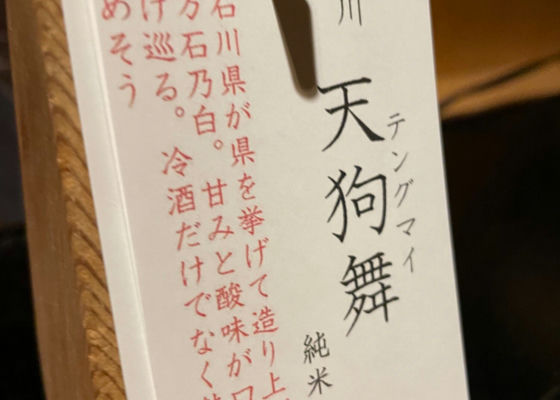 川
テングマイ
天狗舞
純米
石川県が県を挙げて造り上
万石乃白。甘みと酸味が
け巡る。冷酒だけでなく
めそう